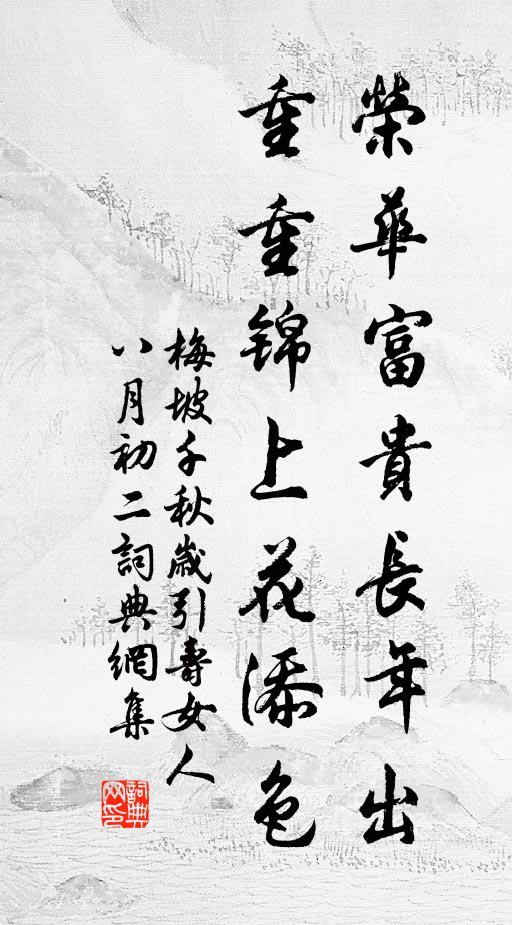 榮華富貴長年出
重重錦上花添色
梅坡千秋歲引壽女人
八月初二詞典網集
詞典网印